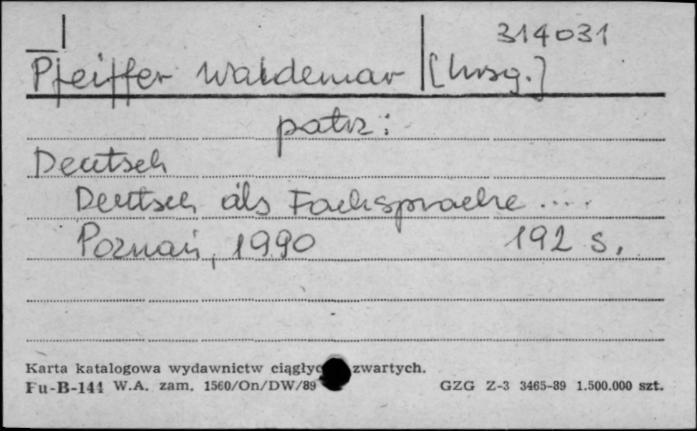 314031
Pfeiffer Waldemar [hrsg.]
patrz:
Deutsch
Deutsch als Fachsprache ....
Poznań, 1990 192 s.
Karta katalogowa wydawnictw zwartych.
Fu-B-141 W.A. zam. 1560/On/DW/89 GZG Z-3 3465-89 1.500.000 szt.